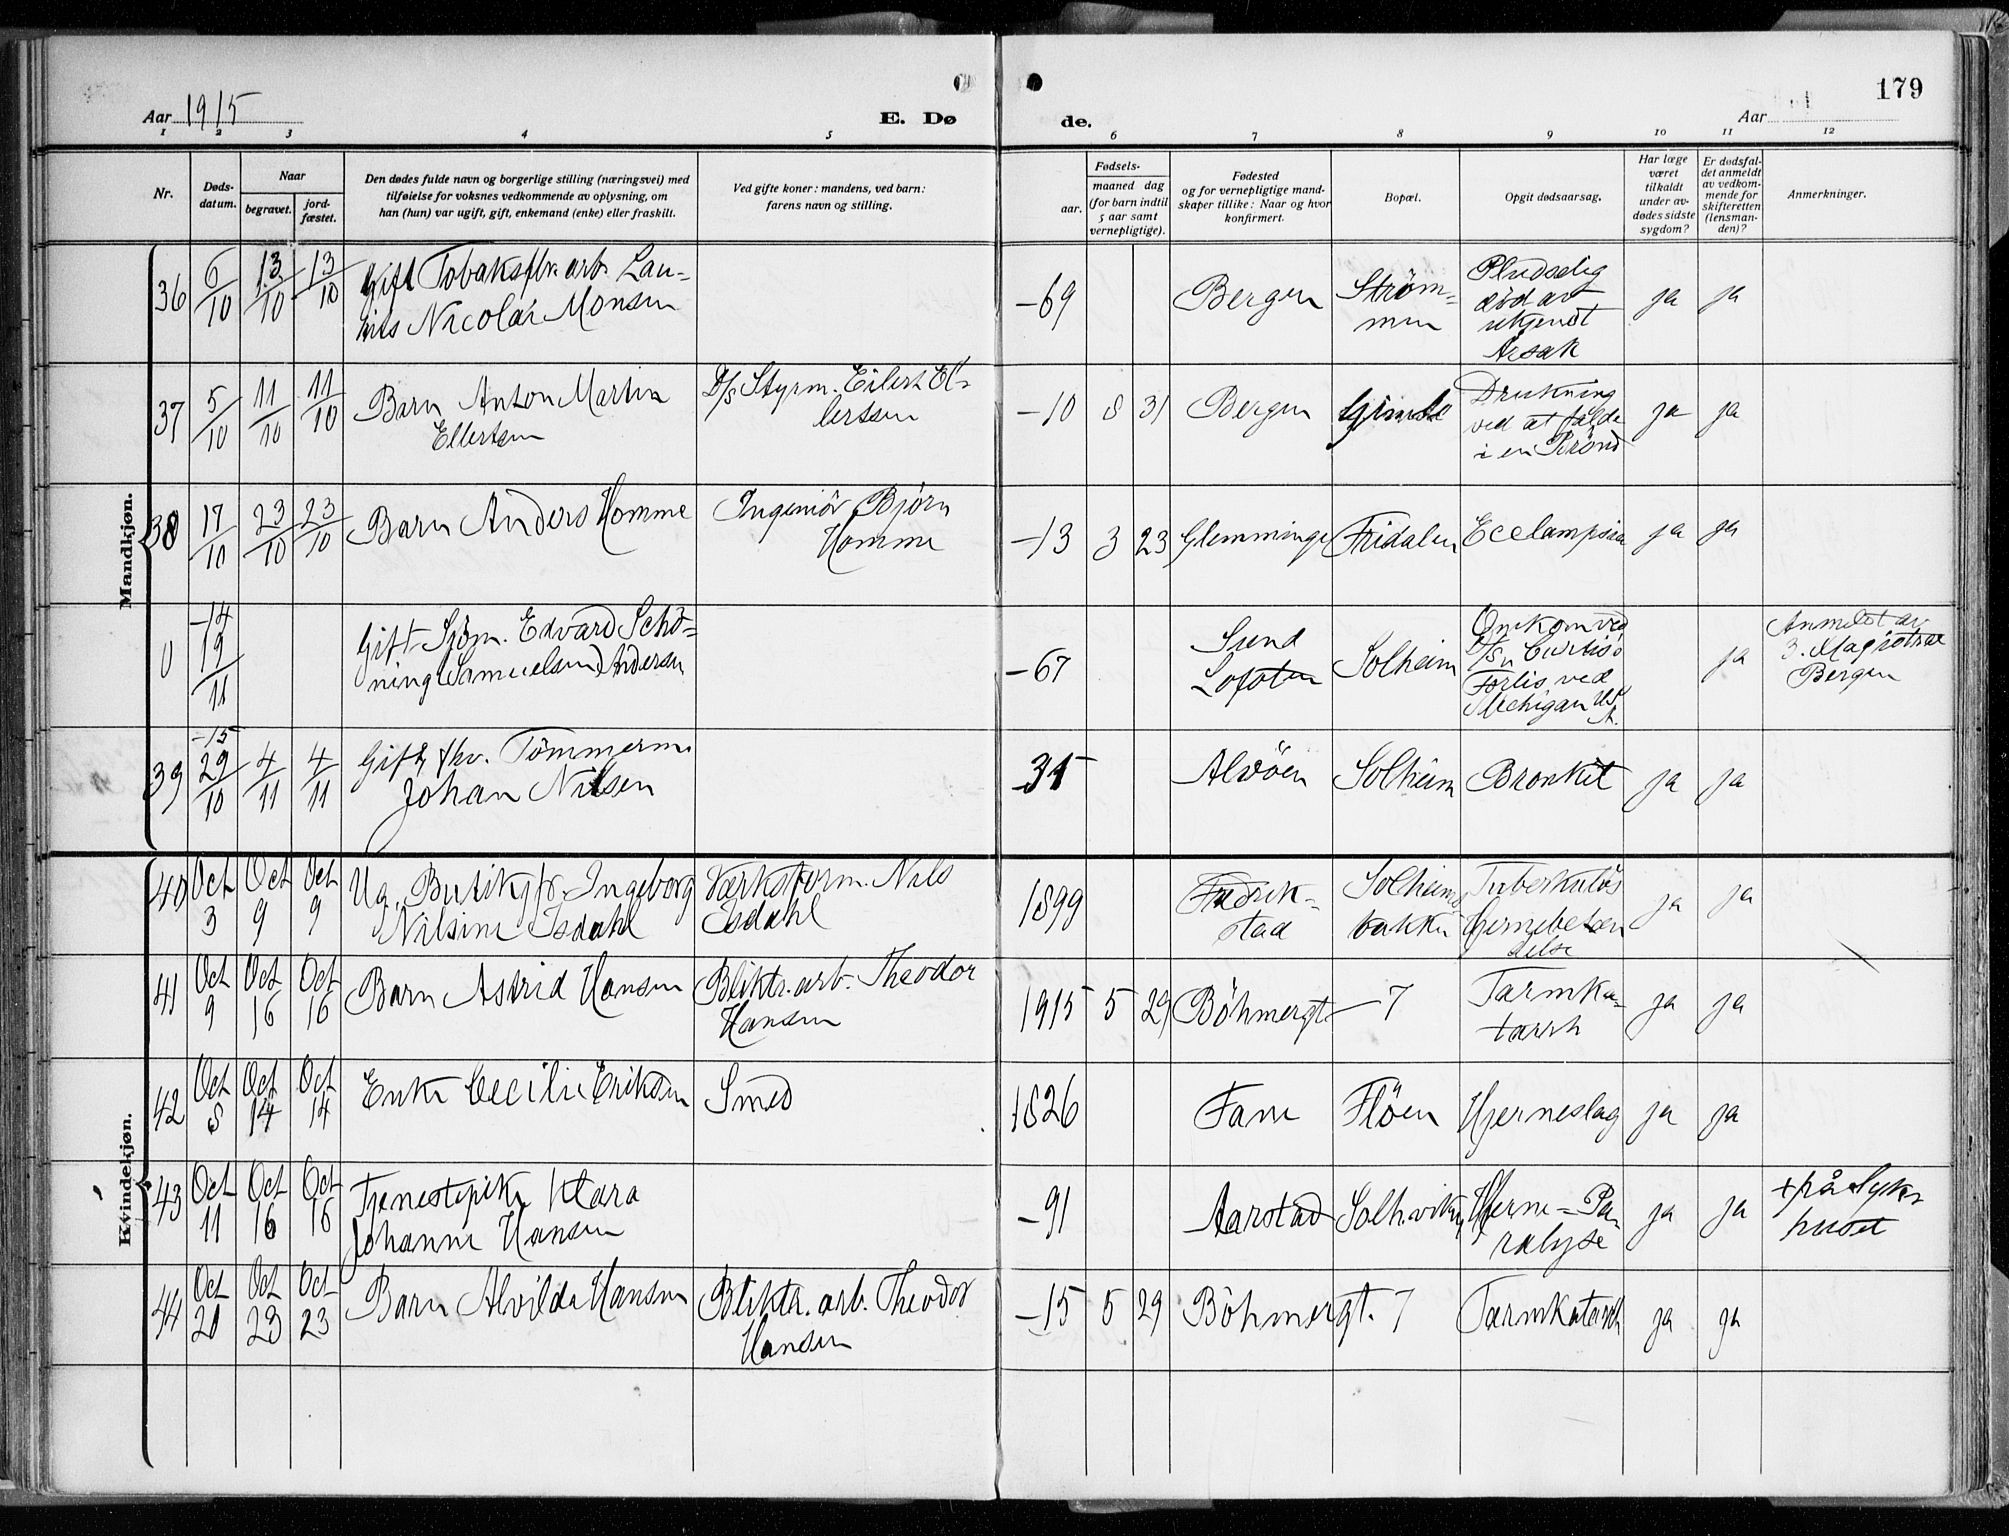 179
Aar 1915
E. Dø
de.
Aar
1 2 3 4 5 6 7 8 9 10 11 12
Nr.
Døds-
datum.
Naar
begravet.
jord-
fæstet.
Den dødes fulde navn og borgerlige stilling (næringsvei) med
tilføielse for voksnes vedkommende av oplysning, om
han (hun) var ugift, gift, enkemand (enke) eller fraskilt.
Ved gifte koner: mandens, ved barn:
farens navn og stilling.
Fødsels-
aar.
maaned dag
(for barn indtil
5 aar samt
vernepligtige).
Fødested
og for vernepligtige mand-
skaper tillike: Naar og hvor
konfirmert.
Bopæl.
Opgit dødsaarsag.
Har læge
været
tilkaldt
under av-
dødes sidste
sygdom?
Er dødsfal-
det anmeldt
av vedkom-
mende for
skifteretten
(lensman-
den)?
Anmerkninger.
Mandkjøn.
36 6/10 13/10 13/10 Gift Tobaksfbr. arb. Lau-
rits Nicolai Monsen
-69 Bergen Strøm-
men
Pludselig
død av
ukjendt
Årsak
ja ja
37 5/10 11/10 11/10 Barn Anton Martin
Ellertsen
D/s Styrm. Eilert El-
lertsen
-10 8 31 Bergen Gimle
Drukning
ved at falde
i en Brønd
ja ja
38 17/10 23/10 23/10 Barn Anders Homme
Ingeniör Björn
Homme
-13 3 23 Glemminge Fridalen Ecclampsia ja ja
0 -14 19/11 Gift Sjöm. Edvard Schö-
ning Samuelsen Andersen
-67 Sund
Lofoten
Solheim
Omkom ved
D/S "Curtis"s
Forlis ved
Michigan US
A.
ja
Anmeldt av
3. Magistrat
Bergen
39 -15 29/10 4/11 4/11 Gift fhv. Tömmerm.
Johan Nilsen
-35 Alvöen Solheim Bronkit ja ja
Kvindekjøn.
40 Oct 3 Oct 9 Oct 9 Ug. Butikjfr. Ingeborg
Nilsine Isdahl
Værksform. Nils
Isdahl
1899 Fredrik-
stad
Solheims
bakken
Tuberkuløs
Hjernebetæn
delse
ja ja
41 Oct 9 Oct 16 Oct 16 Barn Astrid Hansen
Bliktr. arb. Theodor
Hansen
1915 5 29 Böhmergt - 7
Tarmka-
tarrh
ja ja
42 Oct 8 Oct 14 Oct 14 Enke Cecilie Eriksen Smed
1826 Fane Flöen Hjerneslag ja ja
43 Oct 11 Oct 16 Oct 16 Tjenestepike Klara
Johanne Hansen
-91 Aarstad Solh.viken Hjerne-Pa-
ralyse
ja ja
+ på Syke
huset
44 Oct 20 Oct 23 Oct 23 Barn Alvilda Hansen
Bliktr. arb. Theodor
Hansen
-15 5 29 Böhmergt. 7 Tarmkatarrh ja ja